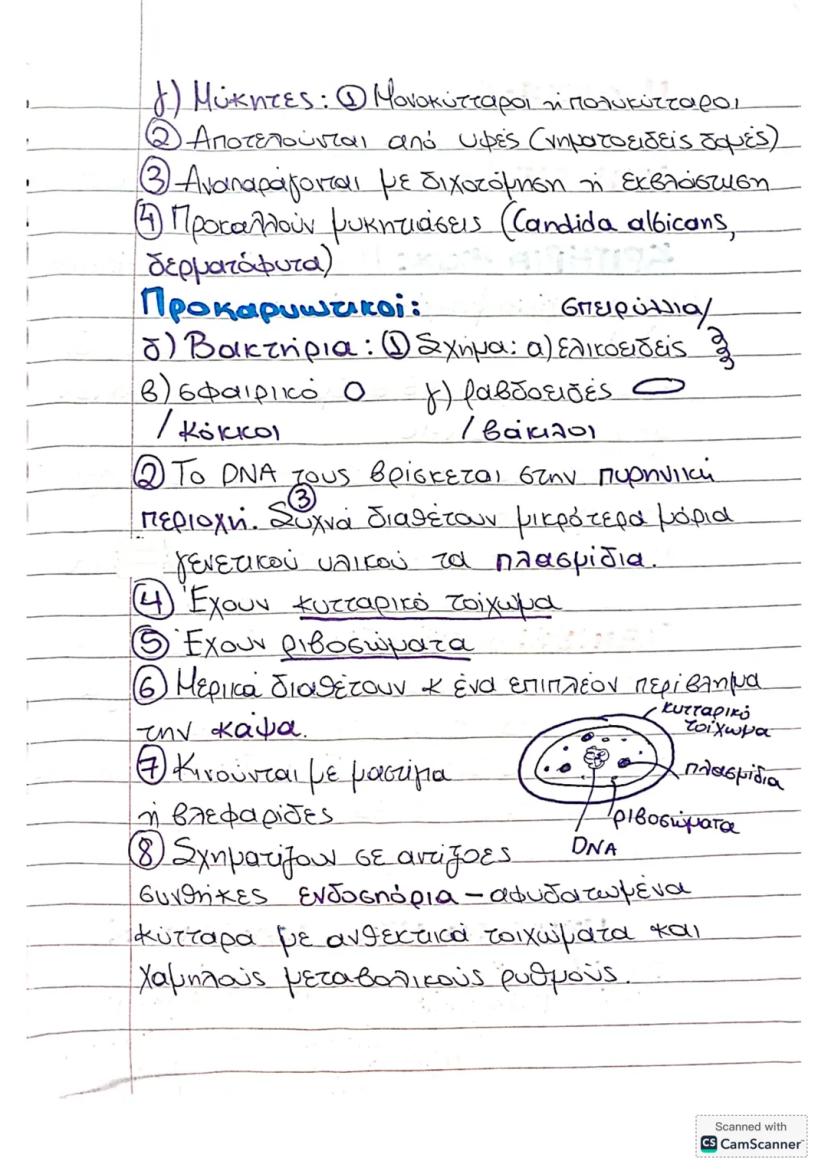 γ) Μύκητες: ① Μονοκύτταροι ή πολυκύτταροι
② Αποτελούνται από υφές (νηματοειδείς δομές)
③ Αναπαράγονται με διχοτόμηση ή εκβλάστηση
④ Προκαλλούν μυκητιάσεις (Candida albicans,
δερματόφυτα)
Προκαρυωτικοί: σπειρύλλια/
δ) Βακτήρια: ① Σχήμα: α) ελικοειδείς
β) σφαιρικό γ) ραβδοειδές
/ κόκκοι / βάκιλοι
② Το DNA τους βρίσκεται στην πυρηνική
περιοχή. ③ Συχνά διαθέτουν μικρότερα μόρια
γενετικού υλικού τα πλασμίδια.
④ Έχουν κυτταρικό τοίχωμα
⑤ Έχουν ριβοσώματα
⑥ Μερικά διαθέτουν κ ένα επιπλέον περίβλημα
την κάψα.
κυτταρικό
τοίχωμα
⑦ Κινούνται με μαστίγια
πλασμίδια
ή βλεφαρίδες
ριβοσώματα
DNA
⑧ Σχηματίζουν σε αντίξοες
συνθήκες ενδοσπόρια - αφυδατωμένα
κύτταρα με ανθεκτικά τοιχώματα και
χαμηλούς μεταβολικούς ρυθμούς.
Scanned with
CS CamScanner